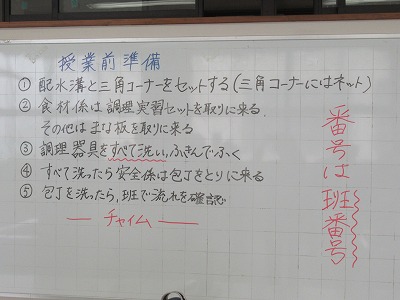 授業前準備
① 配水溝と三角コーナーをセットする(三角コーナーにはネット)
② 食材係は調理実習セットを取りに来る
その他はまな板を取りに来る
③ 調理器具をすべて洗い、ふきんでふく
④ すべて洗ったら安全係は包丁をとりに来る
⑤ 包丁を洗ったら、班で流れを確認
チャイム
番号は班番号